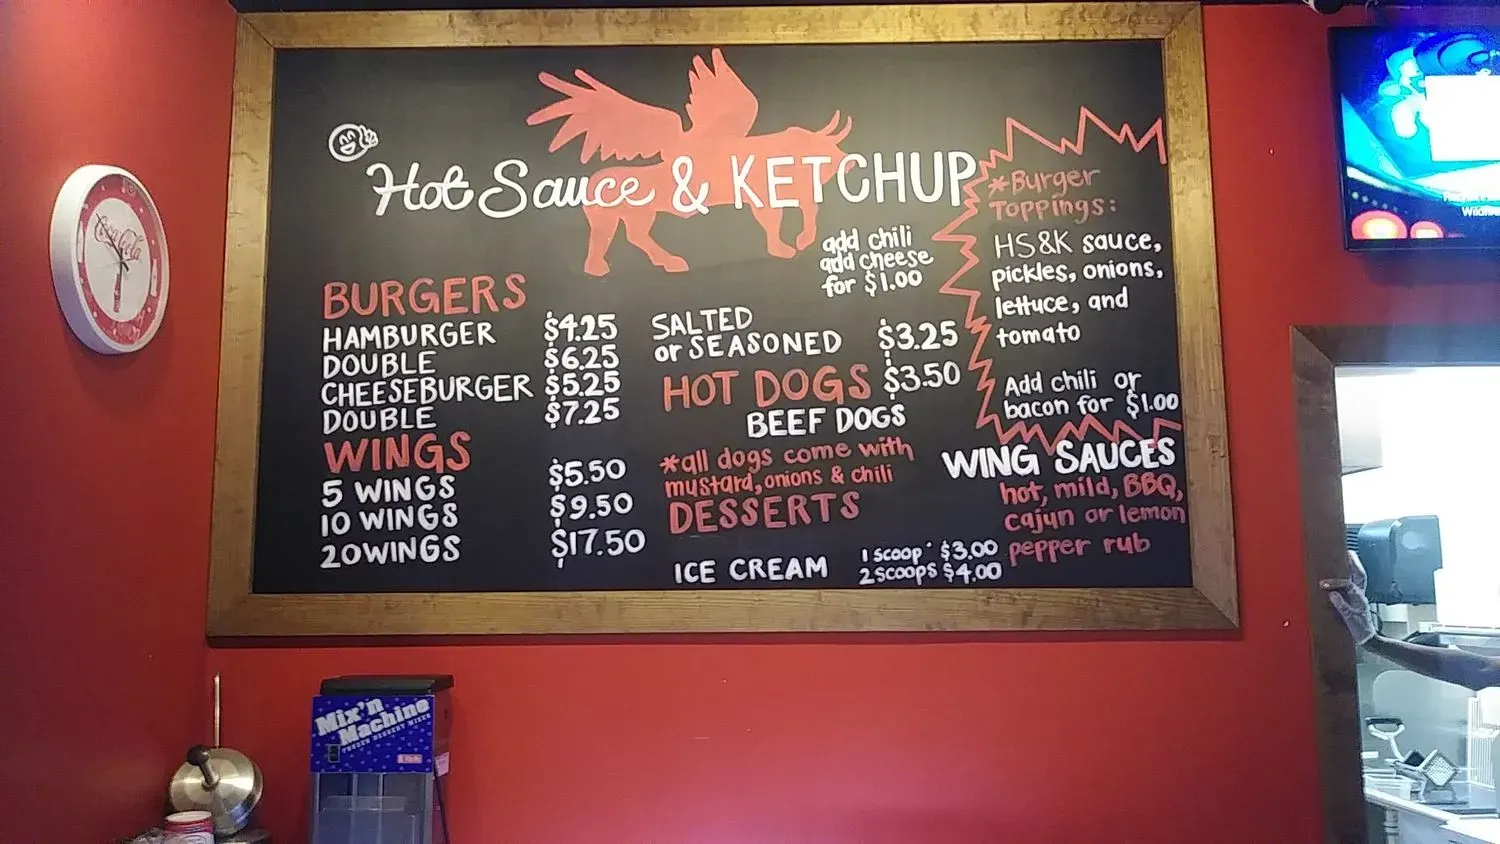 Hot Sauce & KETCHUP
BURGERS
HAMBURGER $4.25
DOUBLE $6.25
CHEESEBURGER $5.25
DOUBLE $7.25
WINGS
5 WINGS $5.50
10 WINGS $9.50
20 WINGS $17.50
add chili
add cheese
for $1.00
SALTED
or SEASONED $3.25
HOT DOGS $3.50
BEEF DOGS
*all dogs come with
mustard, onions & chili
DESSERTS
ICE CREAM
1 scoop $3.00
2 scoops $4.00
*Burger
Toppings:
HS&K sauce,
pickles, onions,
lettuce, and
tomato
Add chili or
bacon for $1.00
WING SAUCES
hot, mild, BBQ,
cajun or lemon
pepper rub
Coca-Cola
Mix'n
Machine